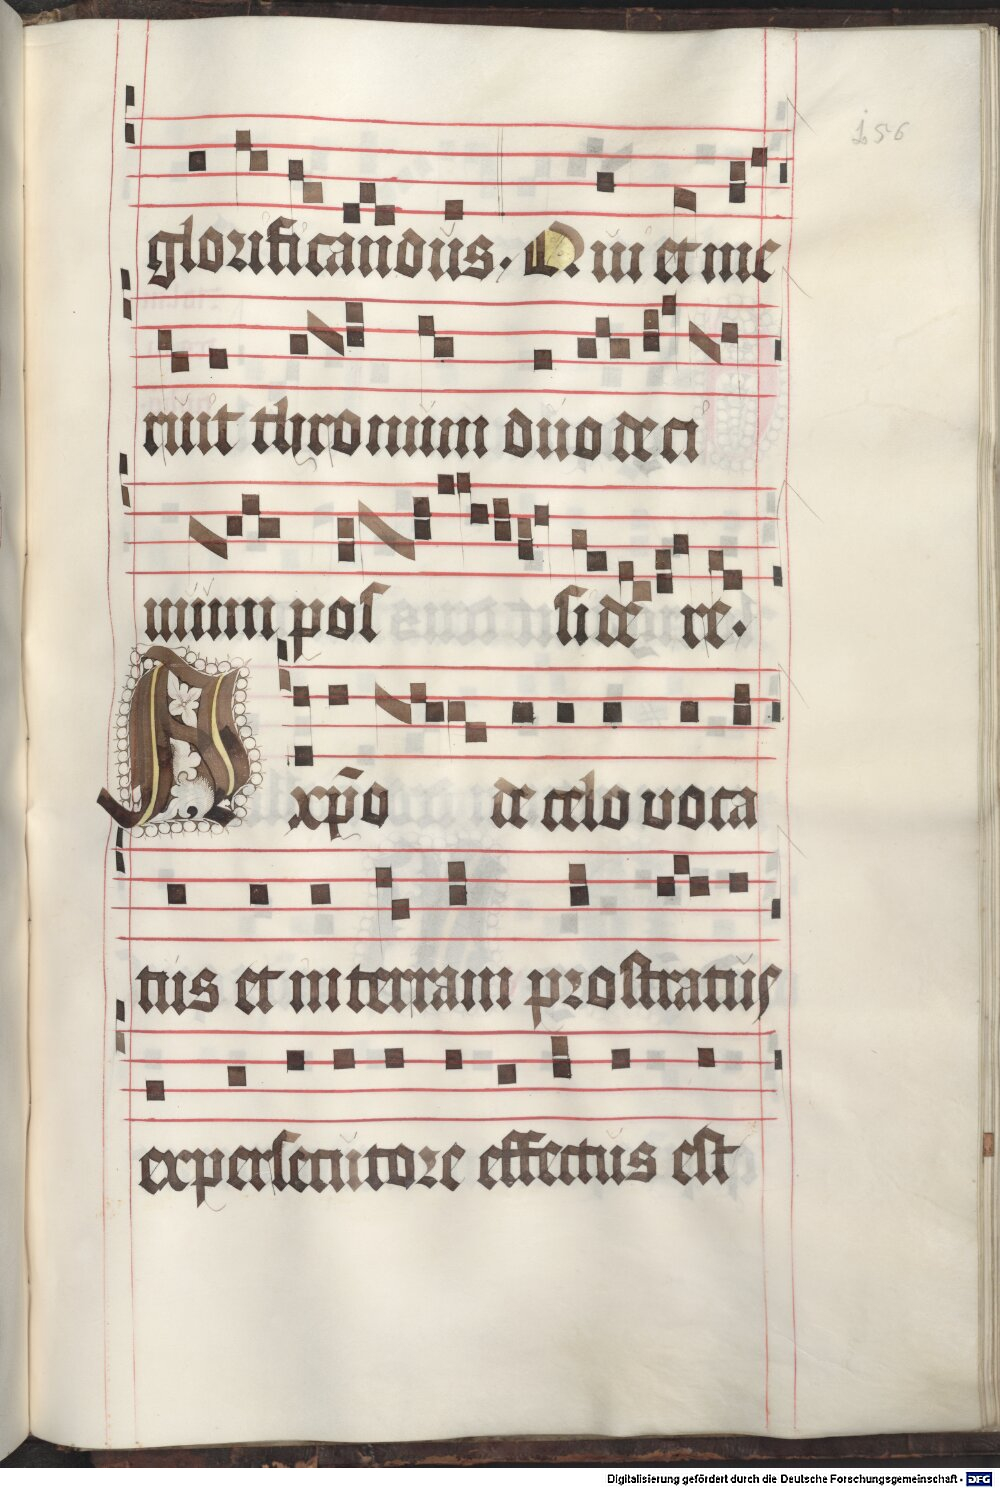 156
glorificandus. Qui et me
ruit thronum duodeci
mum possidere.
A xp̄o de celo voca
tus et in terram prostratus
ex persecutore effectus est
Digitalisierung gefördert durch die Deutsche Forschungsgemeinschaft - DFG